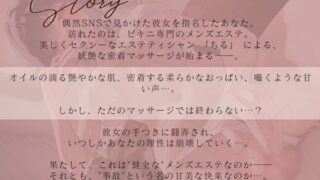 Story
偶然SNSで見かけた彼女を指名したあなた。
訪れたのは、ビキニ専門のメンズエステ。
美しくセクシーなエステティシャン 「ちる」 による、
妖艶な密着マッサージが始まる――。
オイルの滴る艶やかな肌、密着する柔らかなおっぱい、囁くような甘い声…。
しかし、ただのマッサージでは終わらない…？
彼女の手つきに翻弄され、
いつしかあなたの理性は崩壊していく…。
果たして、これは"健全な"メンズエステなのか――
それとも、"事故"という名の甘美な快楽なのか…。